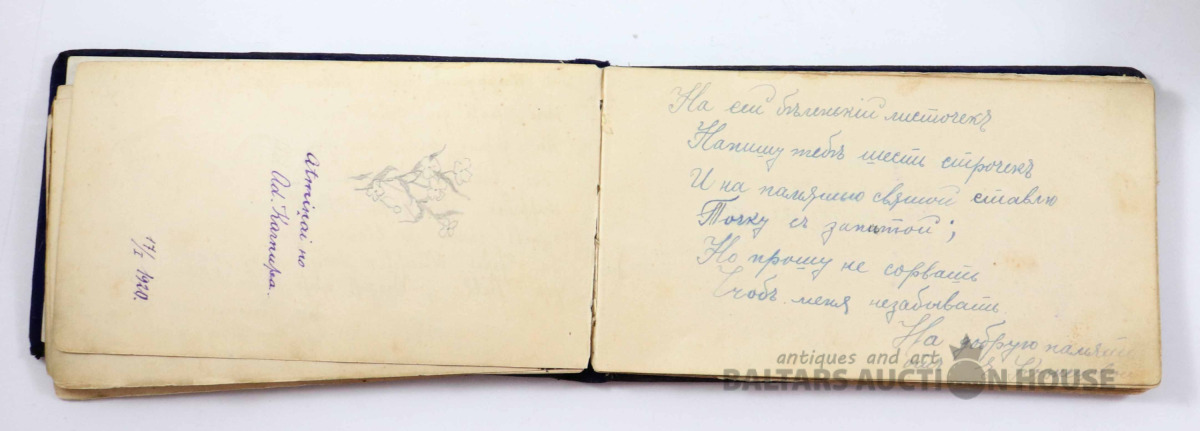 Atmiņai no
Ad. Karnupa.
17/I 1920.
На сей бѣленькій листочекъ
Напишу тебѣ шесть строчекъ
И на память святой ставлю
Точку съ запятой;
Но прошу не сорвать
Чтобъ меня незабывать.
На добрую память
antiques and art
BALTARS AUCTION HOUSE